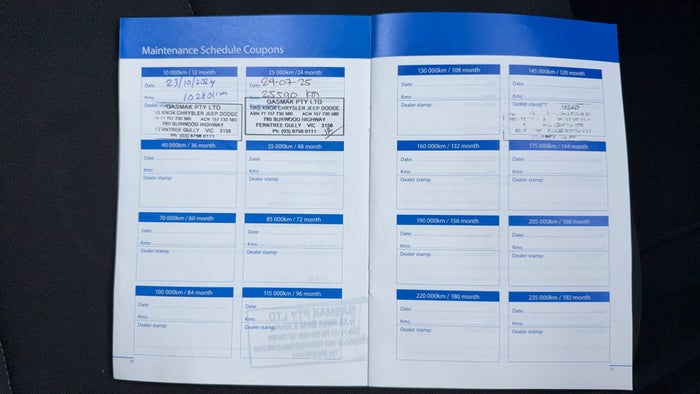 Maintenance Schedule Coupons
10 000km / 12 month
Date: 23/10/2024
Kms: 10280km
Dealer stamp:
GASMAK PTY LTD
T/AS KNOX CHRYSLER JEEP DODGE
ABN 71 157 730 580 ACN 157 730 580
780 BURWOOD HIGHWAY
FERNTREE GULLY VIC 3156
Ph: (03) 8756 0111
25 000km /24 month
Date: 24-07-25
Kms: 25590 KM
GASMAK PTY LTD
T/AS KNOX CHRYSLER JEEP DODGE
ABN 71 157 730 580 ACN 157 730 580
780 BURWOOD HIGHWAY
FERNTREE GULLY VIC 3156
Ph: (03) 8756 0111
40 000km / 36 month
Date:
Kms:
Dealer stamp:
55 000km / 48 month
Date:
Kms:
Dealer stamp:
70 000km / 60 month
Date:
Kms:
Dealer stamp:
85 000km / 72 month
Date:
Kms:
Dealer stamp:
100 000km / 84 month
Date:
Kms:
Dealer stamp:
115 000km / 96 month
Date:
Kms:
Dealer stamp:
GASMAK PTY LTD
10
130 000km / 108 month
Date:
Kms:
Dealer stamp:
145 000km / 120 month
Date:
Kms:
Dealer stamp:
160 000km / 132 month
Date:
Kms:
Dealer stamp:
175 000km / 144 month
Date:
Kms:
Dealer stamp:
190 000km / 156 month
Date:
Kms:
Dealer stamp:
205 000km / 168 month
Date:
Kms:
Dealer stamp:
220 000km / 180 month
Date:
Kms:
Dealer stamp:
235 000km / 192 month
Date:
Kms:
Dealer stamp:
11